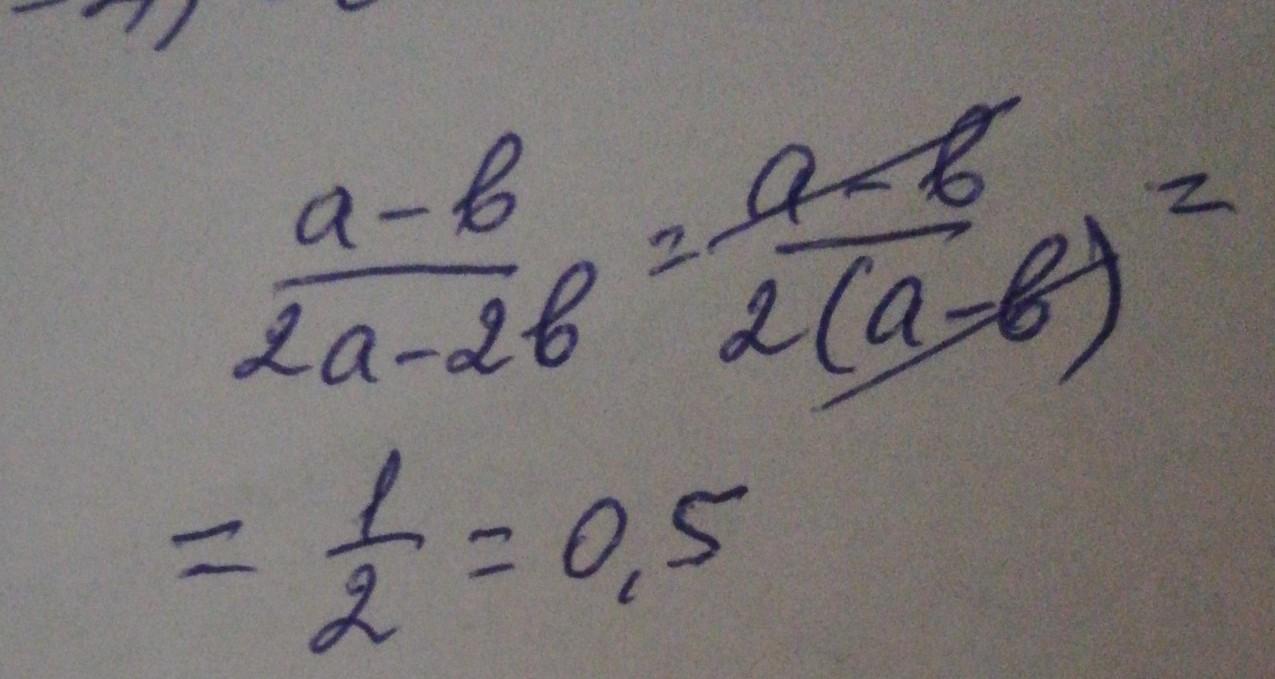 a-b/2a-2b = a-b/2(a-b) =
= 1/2 = 0,5